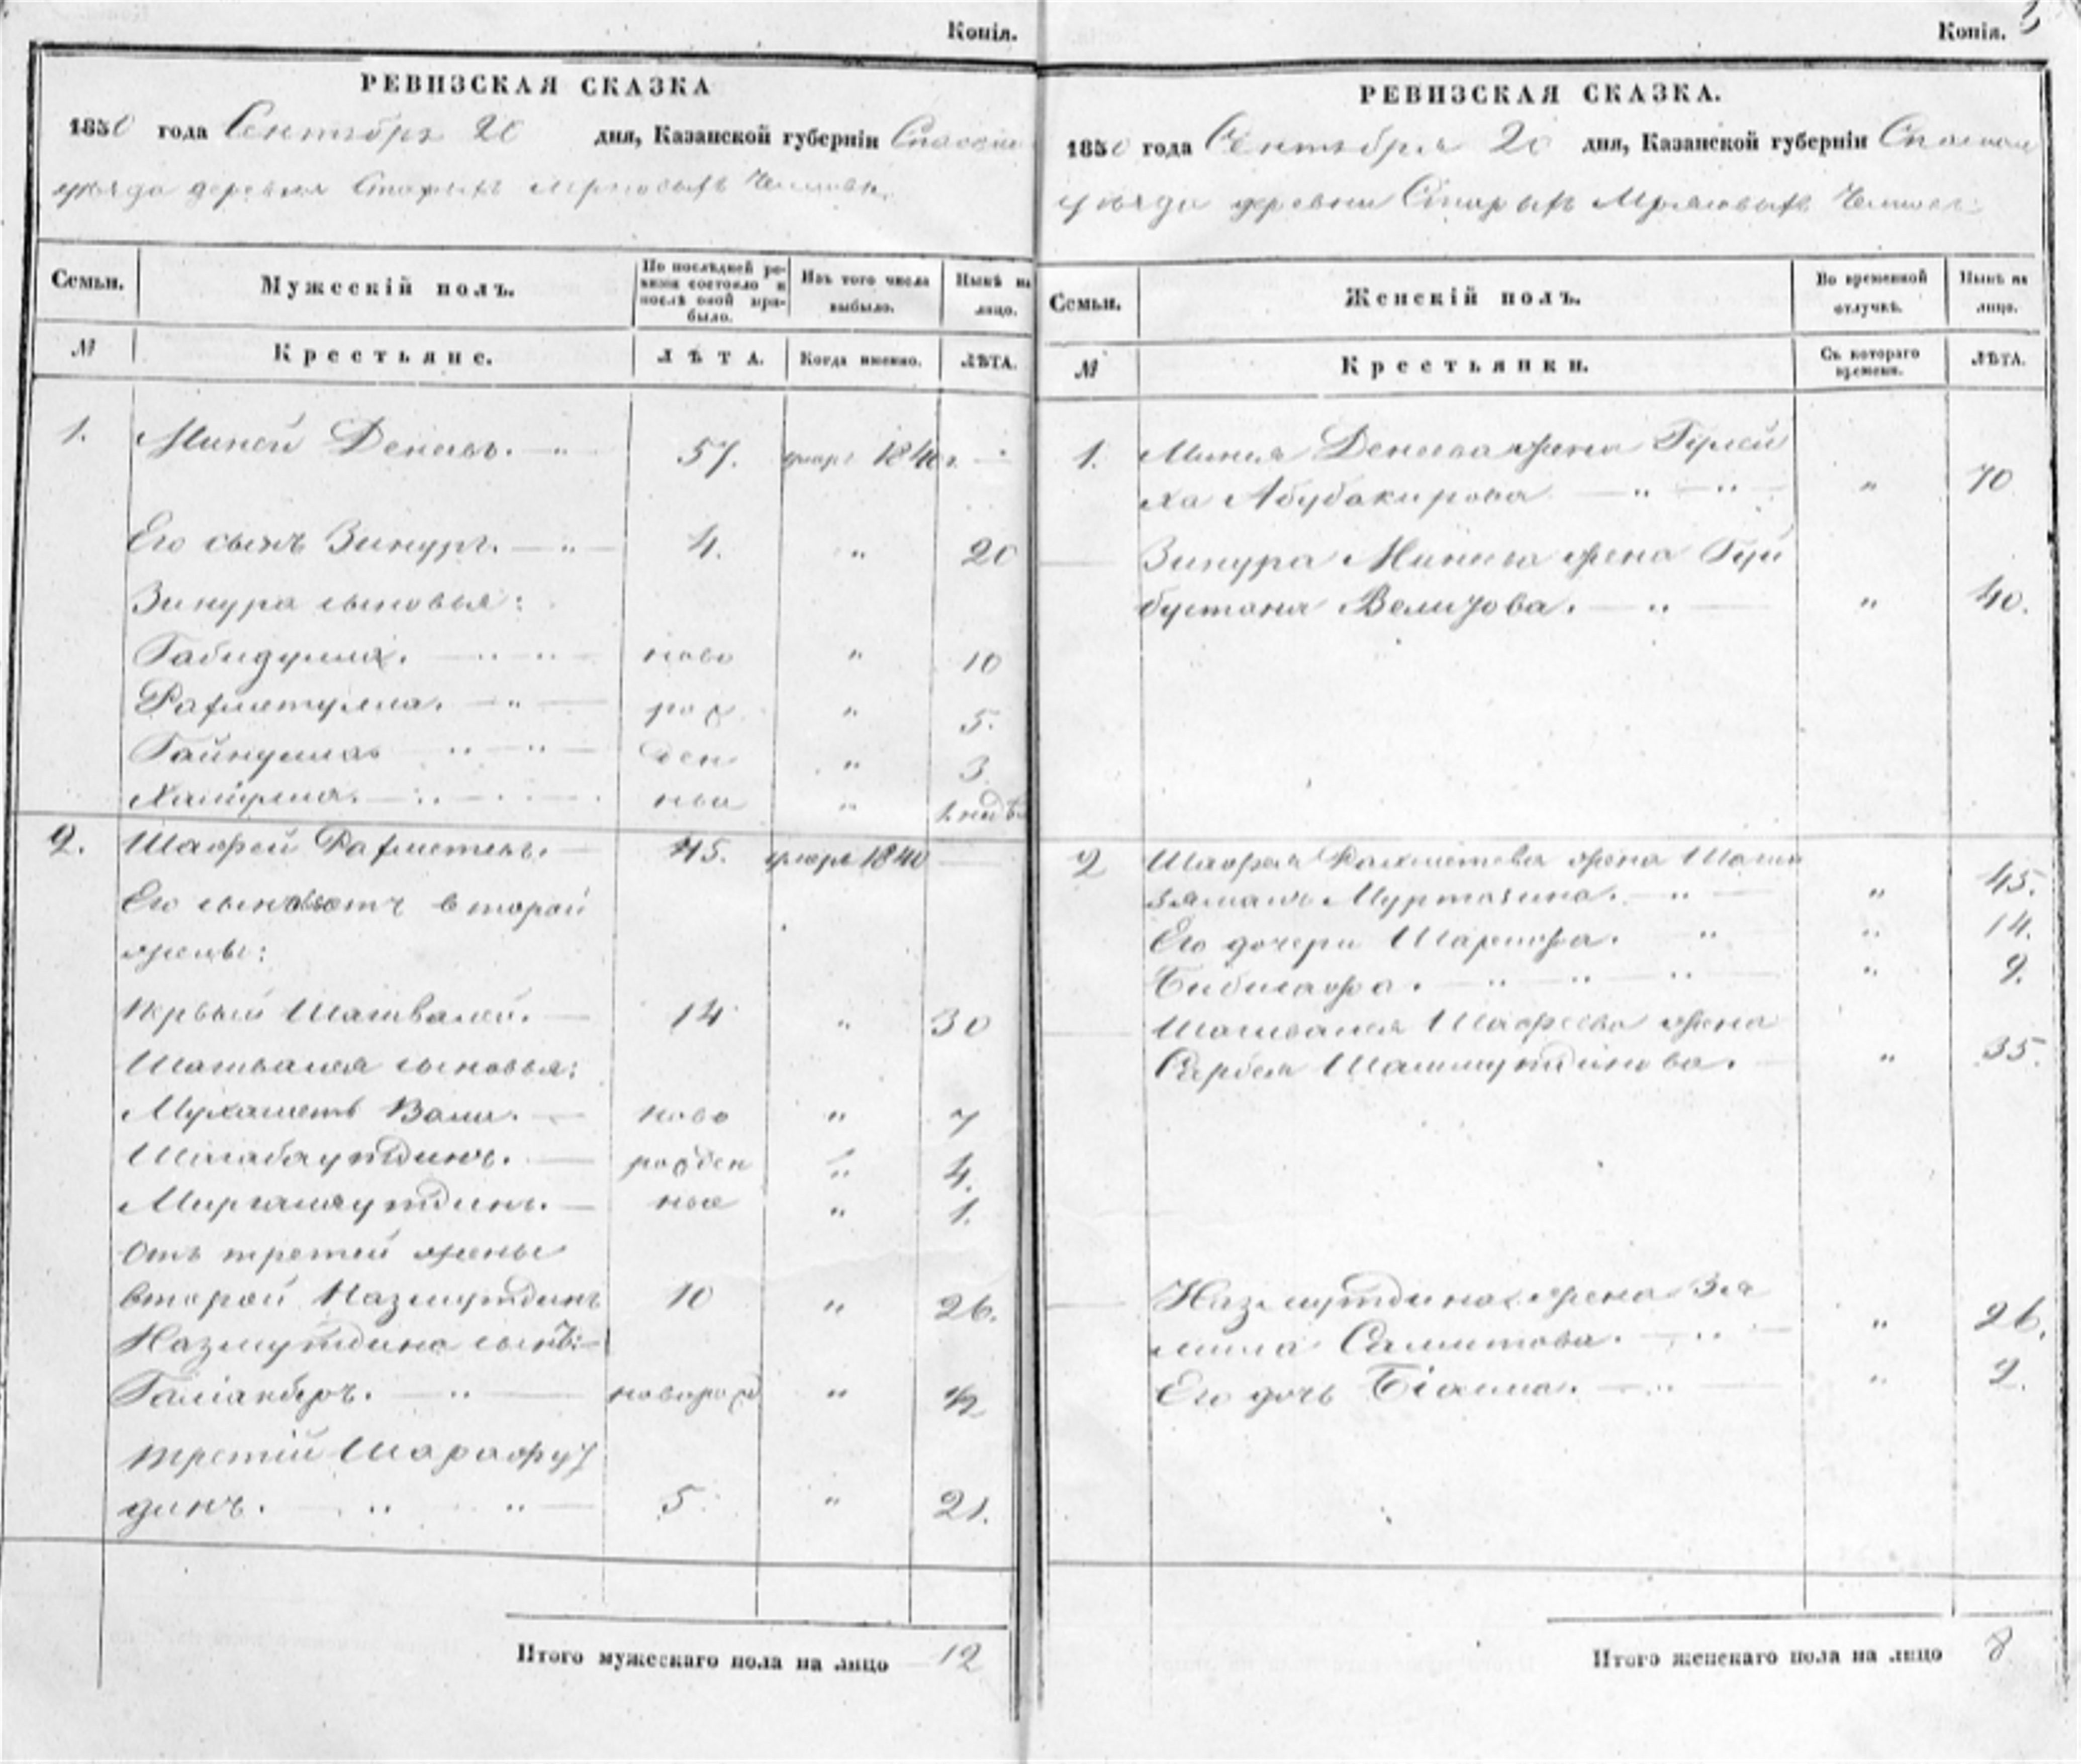 Копія.
РЕВИЗСКАЯ СКАЗКА
1850 года Сентября 20 дня, Казанской губерніи Спасскаго
уѣзда деревни Старыхъ
Семьи.
Мужескій полъ.
По послѣдней ре-
визіи состояло и
послѣ оной при-
было.
Изъ того числа
выбыло.
Нынѣ на
лицо.
№
Крестьяне.
ЛѢТА.
Когда именно.
ЛѢТА.
1. Миней Денеевъ. — " 57. умеръ 1840 г. —
Его сынъ Зинуръ. — " — 4. " 20
Зинура сыновья:
Габидулла. — " — " — ново " 10
Рахметулла. — " — рож " 5.
Гайнулла — " — " — ден " 3.
ные " 1 недѣ
2. Шафей Рахметевъ. — 45. умеръ 1840 —
Его сыновья отъ второй
жены:
первый Шагивалей. — 14 " 30
Шагивалея сыновья:
Мухаметъ Вали. — ново " 7
рожден " 4.
ные " 1.
Отъ третей жены
второй Назмутдинъ 10 " 26.
Назмутдина сынъ: —
Галіакберъ. — " — новорож " 1/2
третій Шарафут
динъ. — " — " — 5 " 21.
Итого мужескаго пола на лицо 12
Копія. 3
РЕВИЗСКАЯ СКАЗКА.
1850 года Сентября 20 дня, Казанской губерніи Спасскаго
уѣзда деревни Старыхъ
Семьи.
Женскій полъ.
Во временной
отлучкѣ.
Нынѣ на
лицо.
№
Крестьянки.
Съ котораго
времени.
ЛѢТА.
1. Минея Денеева жена Гулей
ха Абубакирова — " — " — " 70
Зинура Минеева жена Гуй
бустана Велитова. — " — " 40.
2 Шафея Рахметева жена Шам
Муртазина. — " — " 45.
Его дочери Шарифа. " " 14.
Бибисафа. — " — " — " " 9.
Шагивалея Шафеева жена
Сарбея — " 35.
Назмутдина жена Зя
миля Самитова. — " — " 26.
Его дочь — " — " 2.
Итого женскаго пола на лицо 8